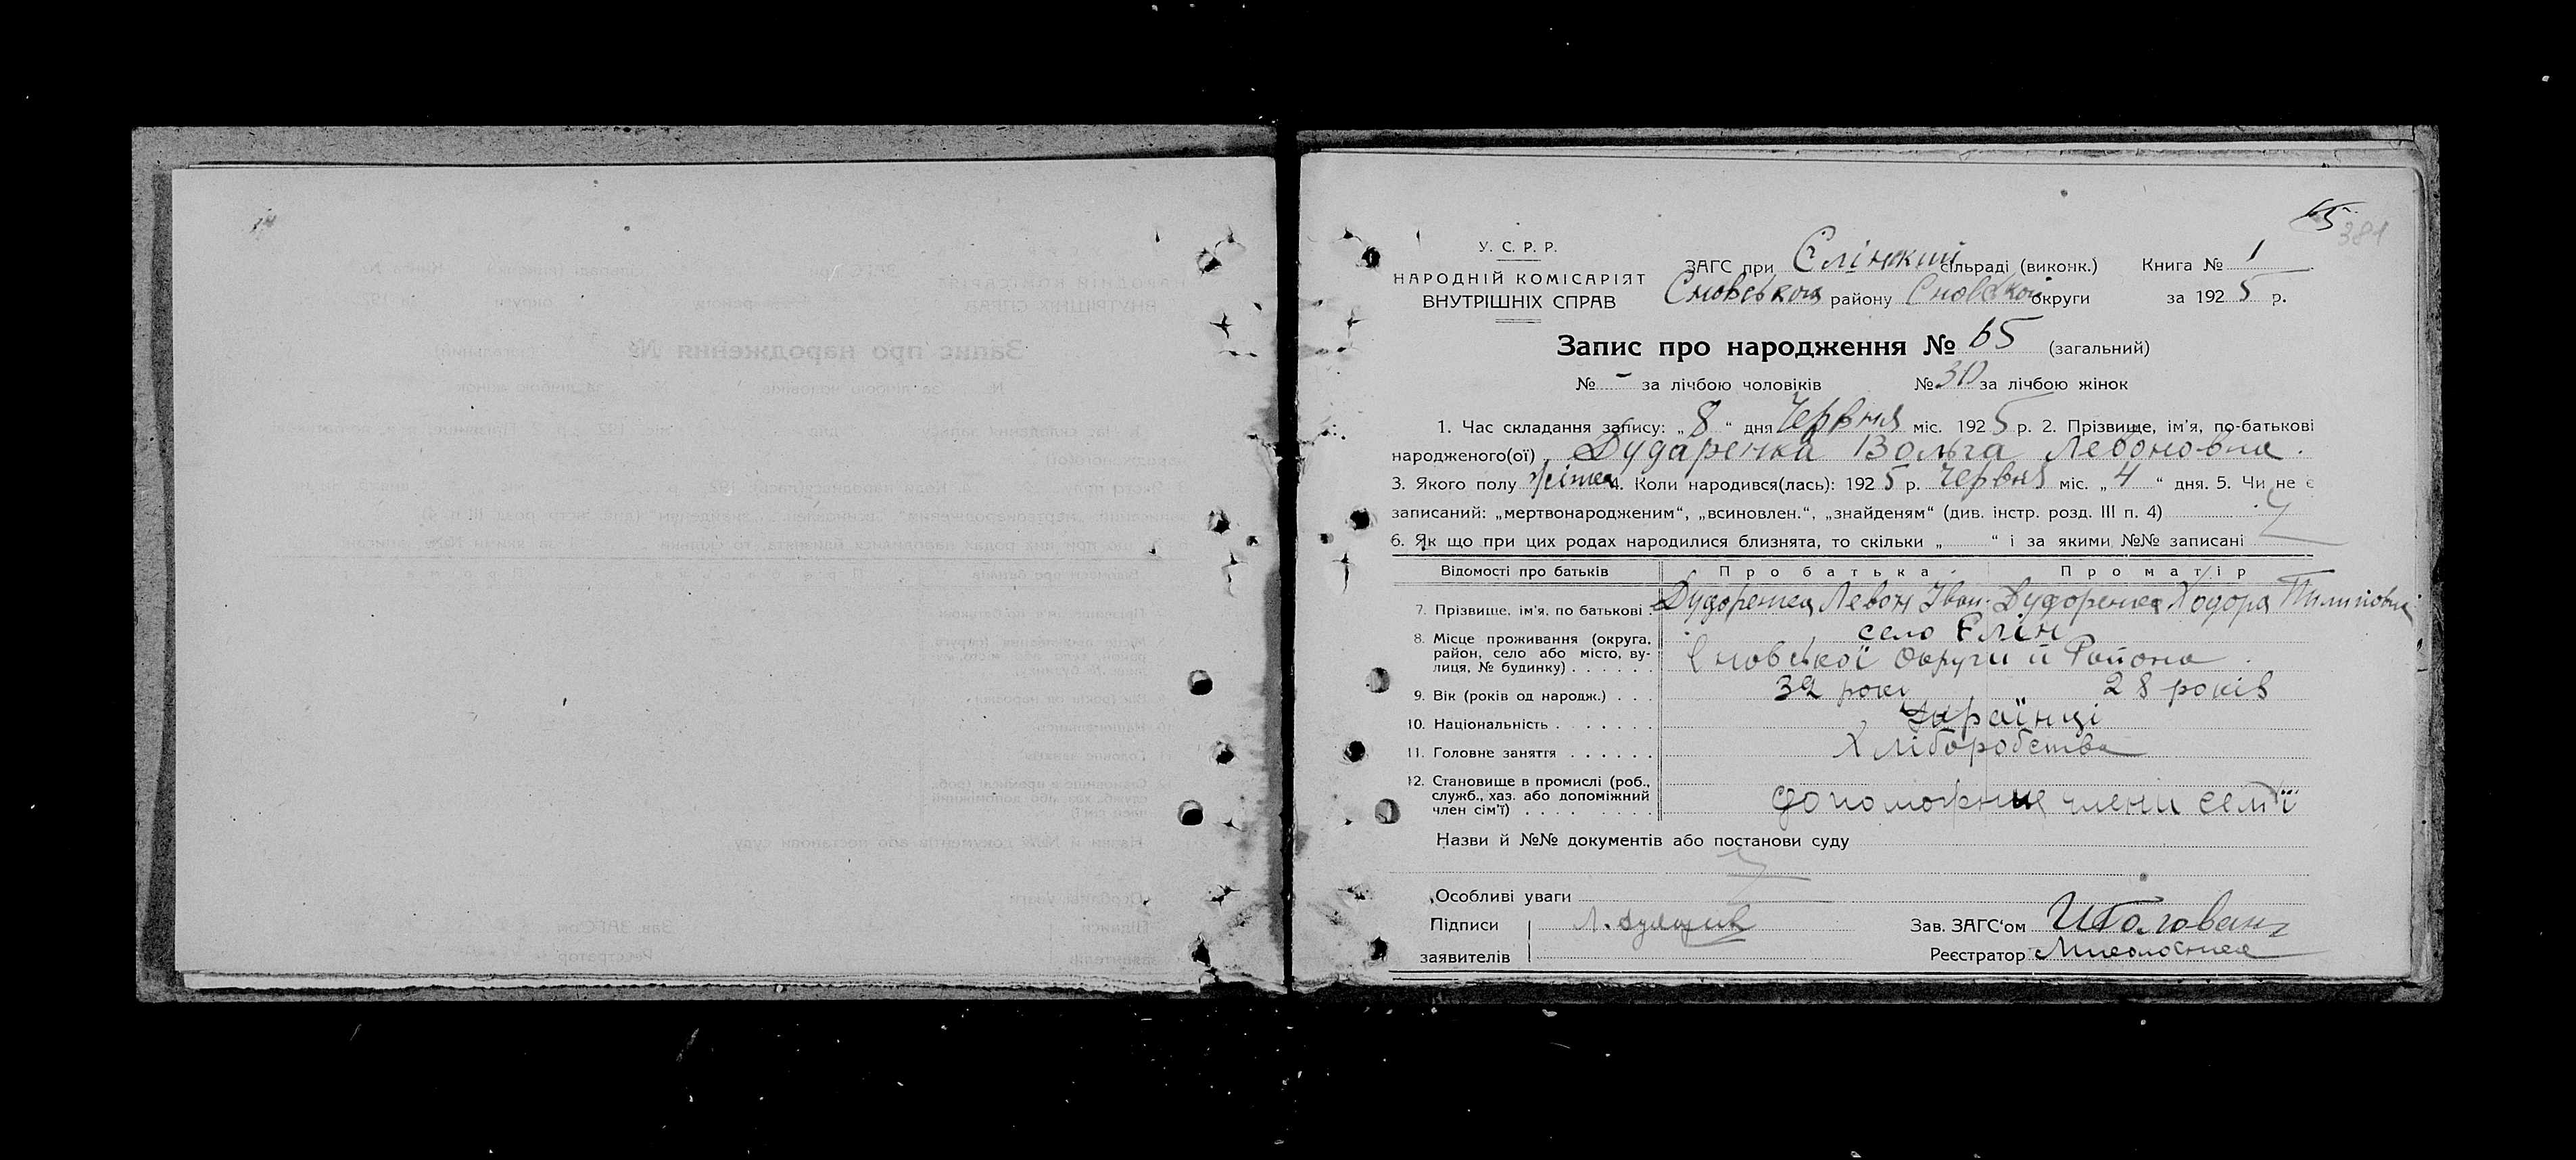 65
381
У. С. Р. Р.
НАРОДНІЙ КОМІСАРІЯТ
ВНУТРІШНІХ СПРАВ
ЗАГС при Єлінкий сільраді (виконк.) Книга № 1
Сновського району Сновской округи за 1925 р.
Запис про народження № 65 (загальний)
№ - за лічбою чоловіків № 30 за лічбою жінок
1. Час складання запису: „8“ дня Червня міс. 1925 р. 2. Прізвище, ім'я, по-батькові
народженого(ої) Дударенка Вольга Левоновна.
3. Якого полу 4. Коли народився(лась): 1925 р. Червня міс. „4“ дня. 5. Чи не є
записаний: „мертвонародженим“, „всиновлен.“, „знайденям“ (див. інстр. розд. III п. 4)
6. Як що при цих родах народилися близнята, то скільки „ “ і за якими №№ записані
Відомості про батьків Про батька Про матір
7. Прізвище, ім'я, по батькові Дударенка Левон Іван. Дударенка Ходора Пилиповна
8. Місце проживання (округа, район, село або місто, вулиця, № будинку) село Єлін
Сновської Округи й Района
9. Вік (років од народж.) 32 роки 28 років
10. Національність Українці
11. Головне заняття Хліборобства
12. Становище в промислі (роб., служб., хаз. або допоміжний член сім'ї) члени семїї
Назви й №№ документів або постанови суду
Особливі уваги
Підписи
заявителів
Зав. ЗАГС'ом
Реєстратор